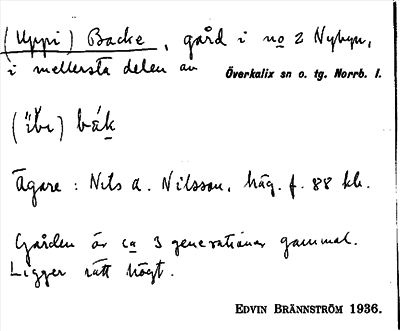 (Uppi) Backe, gård i no 2 Nybyn,
i mellersta delen av Överkalix sn o. tg. Norrb. l.
bák
Ägare: Nils A. Nilsson, häg. f. 88 kh.
Gården är ca 3 generationer gammal.
Ligger rätt högt.
EDVIN BRÄNNSTRÖM 1936.